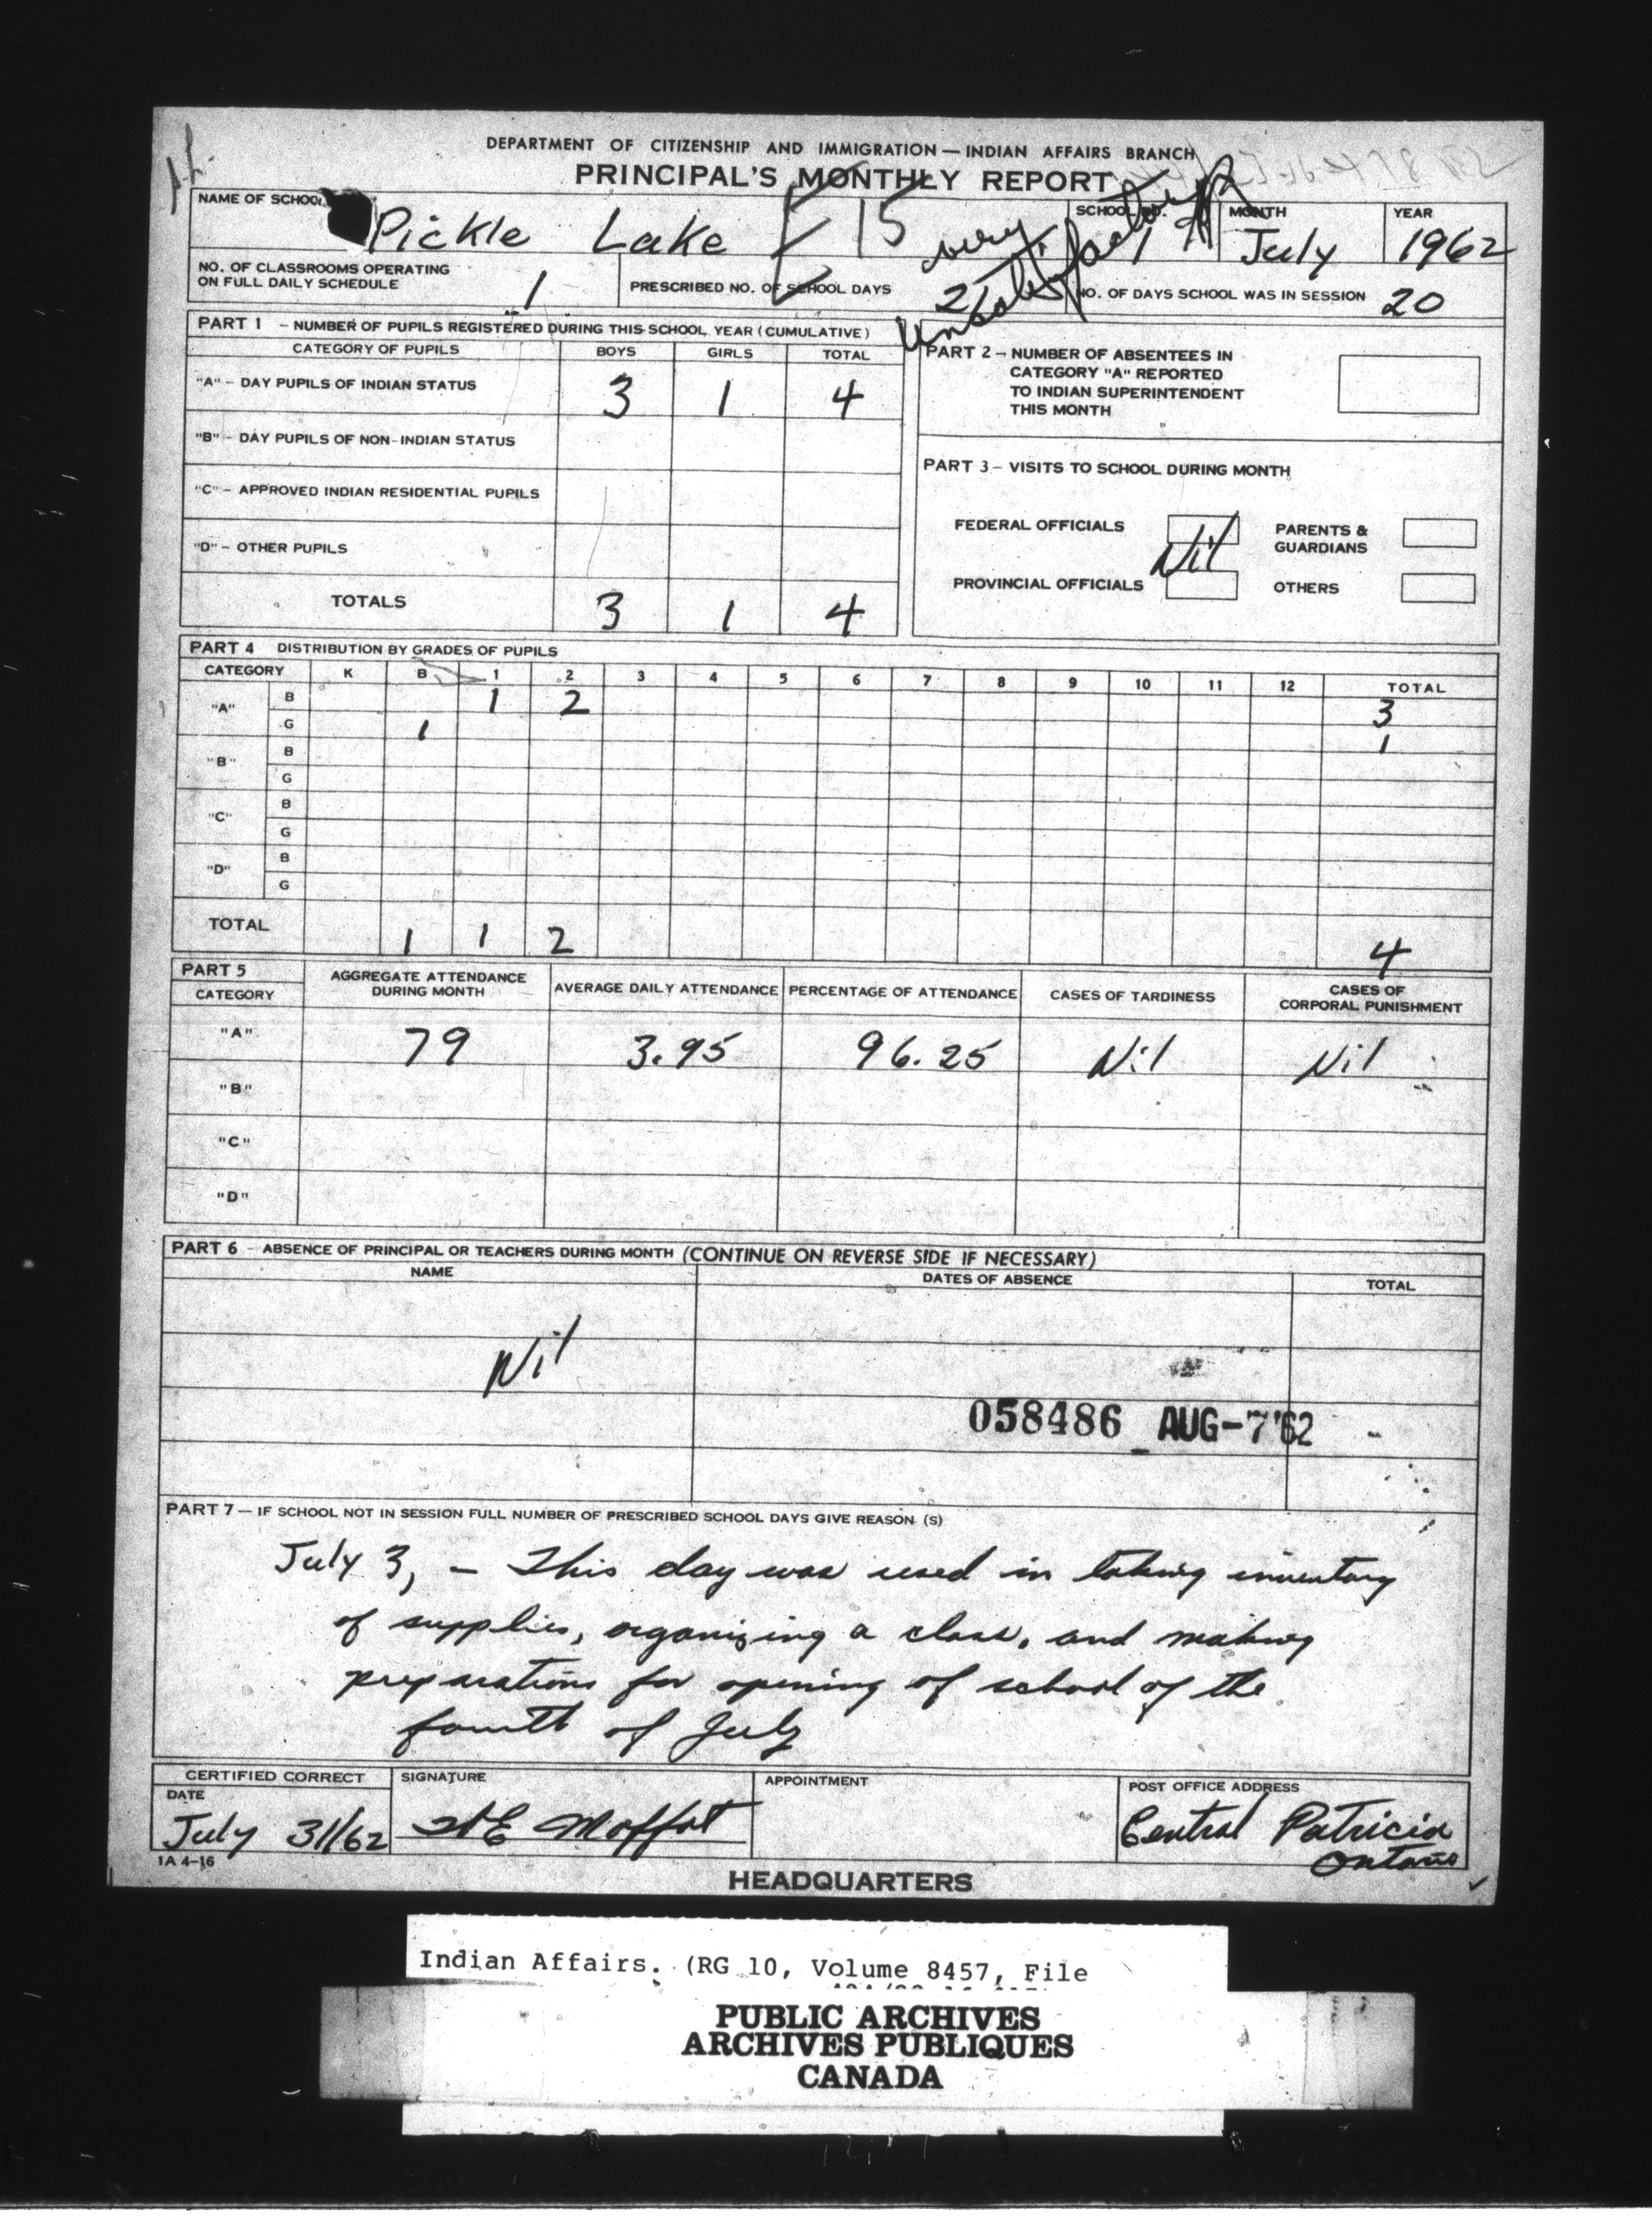 DEPARTMENT OF CITIZENSHIP AND IMMIGRATION — INDIAN AFFAIRS BRANCH
PRINCIPAL'S MONTHLY REPORT
NAME OF SCHOOL
Pickle Lake
15
very
unsatisfactory
SCHOOL NO.
1
MONTH
July
YEAR
1962
NO. OF CLASSROOMS OPERATING
ON FULL DAILY SCHEDULE
1
PRESCRIBED NO. OF SCHOOL DAYS
21
NO. OF DAYS SCHOOL WAS IN SESSION
20
PART 1 - NUMBER OF PUPILS REGISTERED DURING THIS SCHOOL YEAR (CUMULATIVE)
CATEGORY OF PUPILS BOYS GIRLS TOTAL
"A" - DAY PUPILS OF INDIAN STATUS 3 1 4
"B" - DAY PUPILS OF NON-INDIAN STATUS
"C" - APPROVED INDIAN RESIDENTIAL PUPILS
"D" - OTHER PUPILS
TOTALS 3 1 4
PART 2 - NUMBER OF ABSENTEES IN
CATEGORY "A" REPORTED
TO INDIAN SUPERINTENDENT
THIS MONTH
PART 3 - VISITS TO SCHOOL DURING MONTH
FEDERAL OFFICIALS
PARENTS &
GUARDIANS
Nil
PROVINCIAL OFFICIALS
OTHERS
PART 4 DISTRIBUTION BY GRADES OF PUPILS
CATEGORY K B 1 2 3 4 5 6 7 8 9 10 11 12 TOTAL
"A" B 1 2 3
G 1 1
"B" B
G
"C" B
G
"D" B
G
TOTAL 1 1 2 4
PART 5
CATEGORY
AGGREGATE ATTENDANCE
DURING MONTH
AVERAGE DAILY ATTENDANCE
PERCENTAGE OF ATTENDANCE
CASES OF TARDINESS
CASES OF
CORPORAL PUNISHMENT
"A" 79 3.95 96.25 Nil Nil
"B"
"C"
"D"
PART 6 - ABSENCE OF PRINCIPAL OR TEACHERS DURING MONTH (CONTINUE ON REVERSE SIDE IF NECESSARY)
NAME DATES OF ABSENCE TOTAL
Nil
058486 AUG-7'62
PART 7 — IF SCHOOL NOT IN SESSION FULL NUMBER OF PRESCRIBED SCHOOL DAYS GIVE REASON (S)
July 3, - This day was used in taking inventory
of supplies, organizing a class, and making
preparations for opening of school of the
fourth of July
CERTIFIED CORRECT
DATE
July 31/62
SIGNATURE
Moffat
APPOINTMENT
POST OFFICE ADDRESS
Central Patricia
Ontario
IA 4-16
HEADQUARTERS
Indian Affairs. (RG 10, Volume 8457, File
PUBLIC ARCHIVES
ARCHIVES PUBLIQUES
CANADA